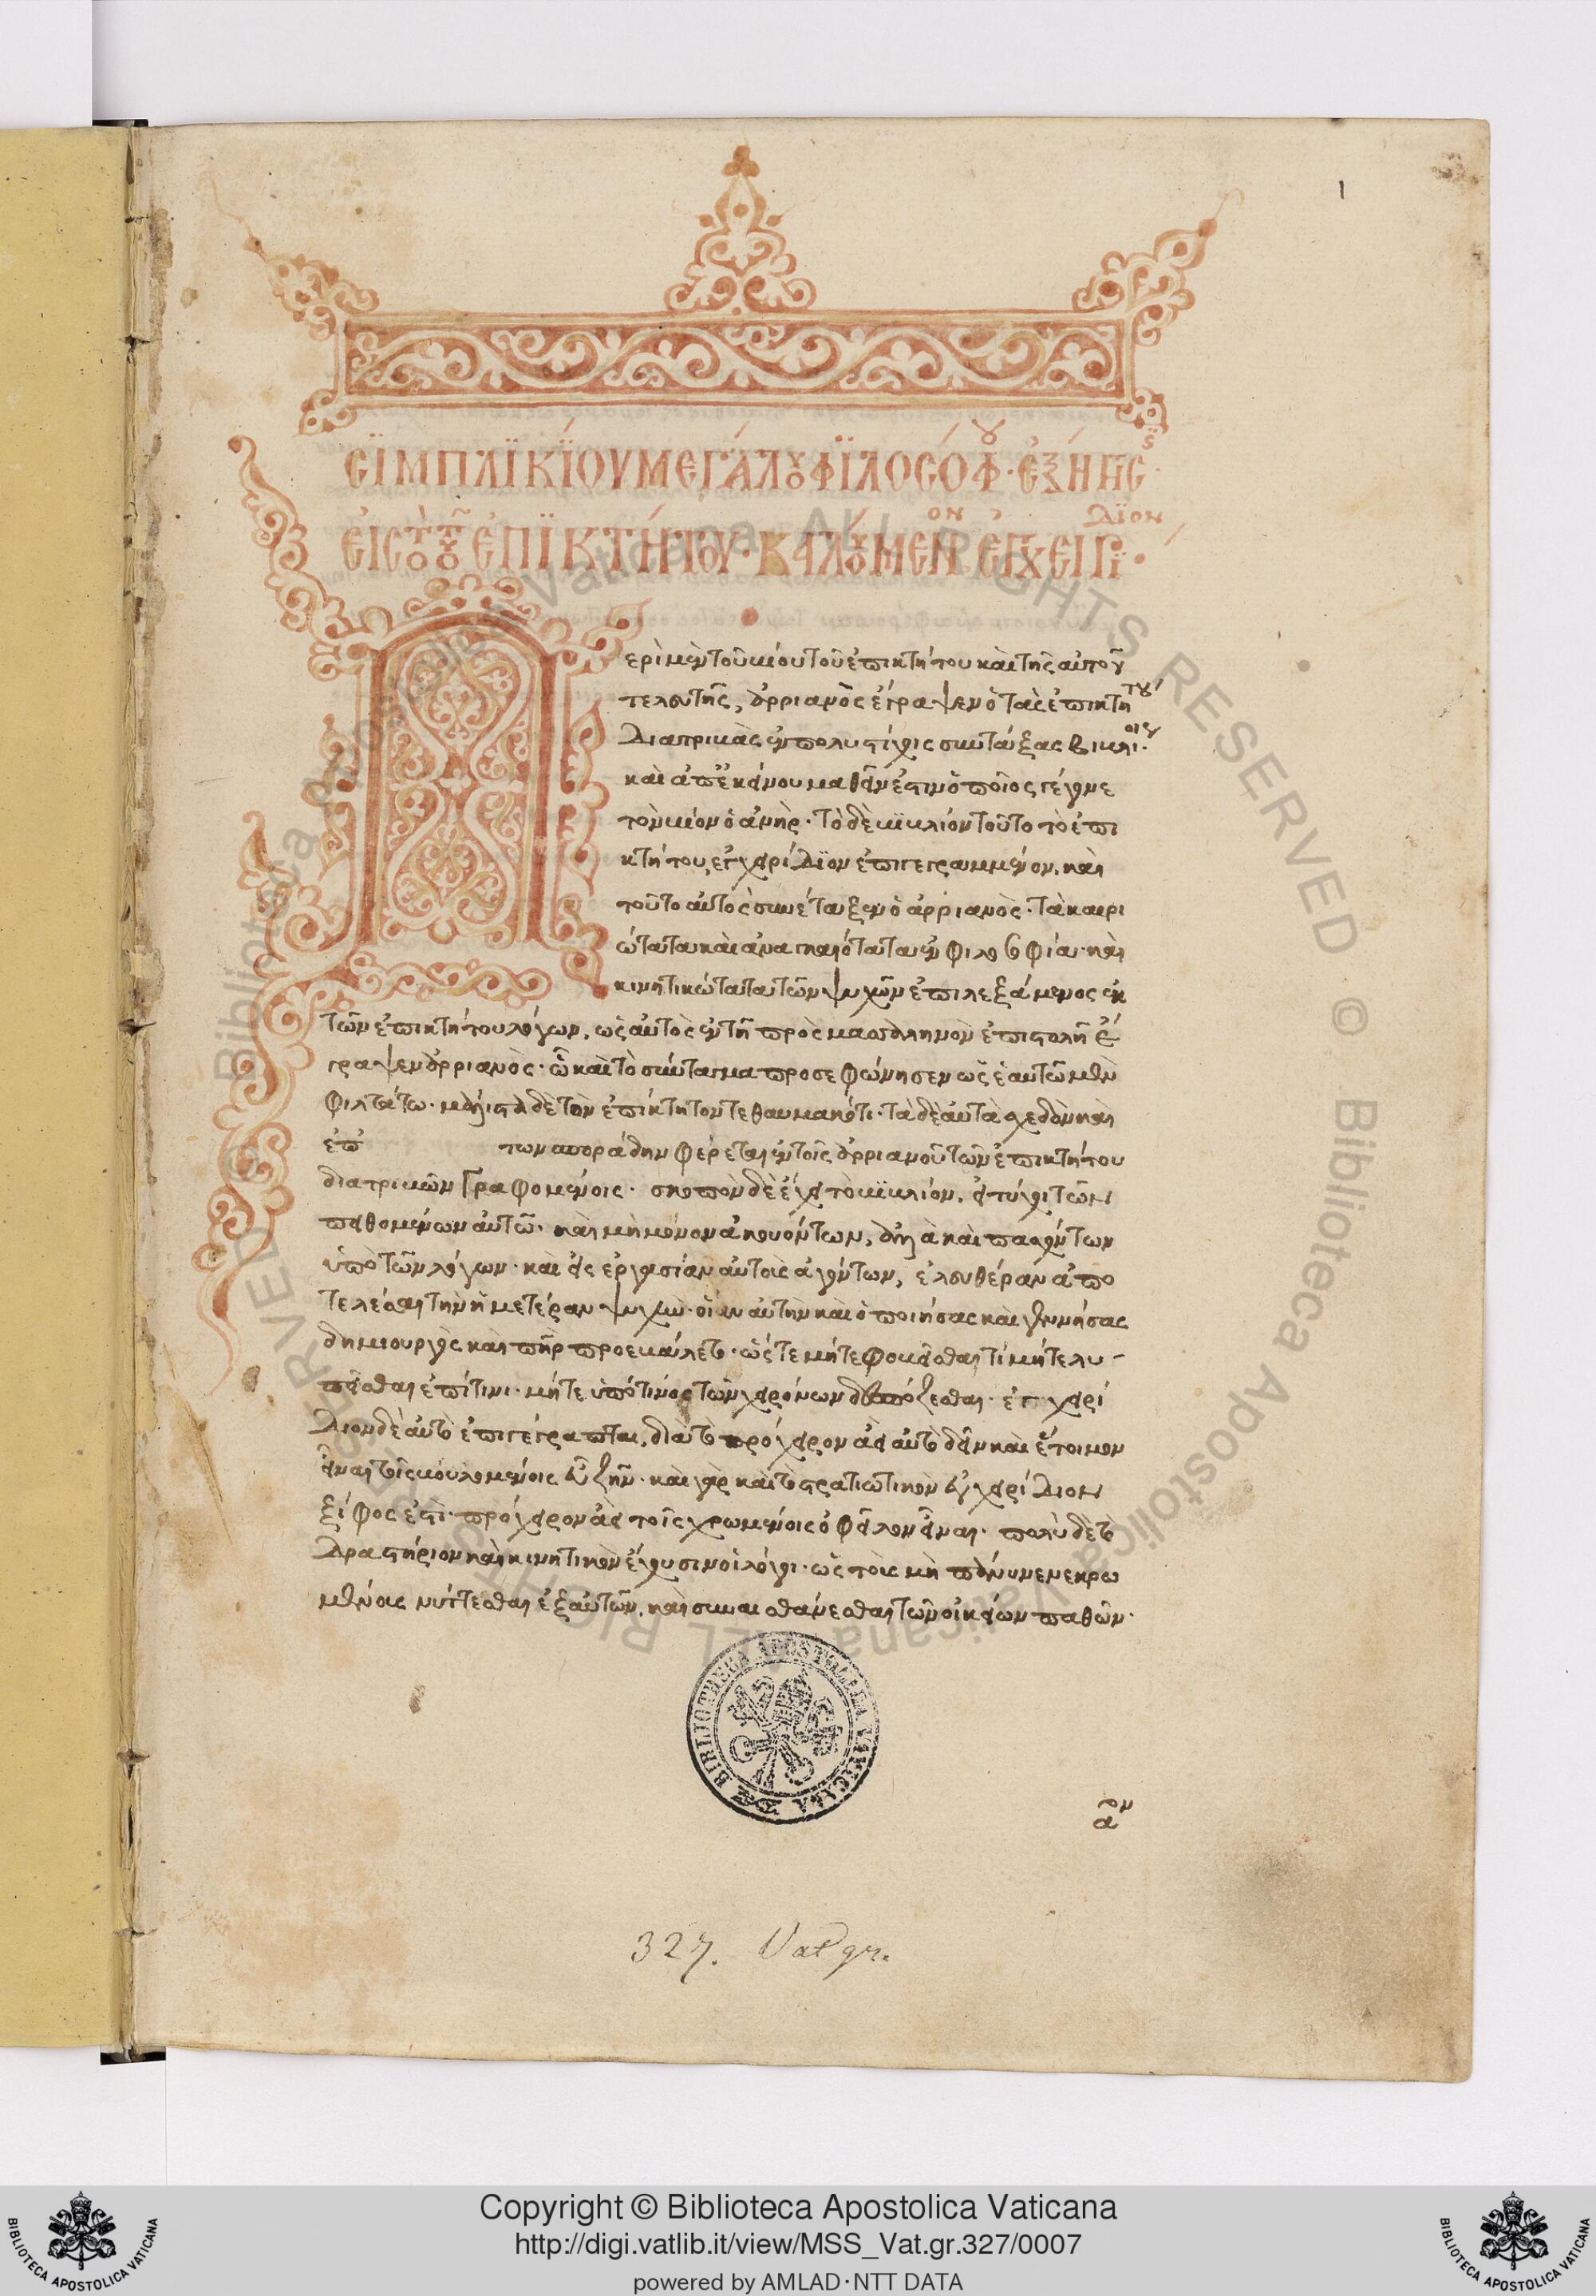 1
σϊμπλϊκΐου μεγάλου φϊλοσόφου· ἐξήγησις·
εἰς τὸ τοῦ ἐπϊκτήτου· καλούμενον ἐγχειρίδϊον·
Περὶ μὲν τοῦ βίου τοῦ ἐπικτήτου καὶ τῆς αὐτοῦ
τελευτῆς, ἀρριανὸς ἔγραψεν ὁ τὰς ἐπικτήτου
διατριβὰς ἐν πολυστίχοις συντάξας βιβλίοις·
καὶ ἀπ' ἐκείνου μαθεῖν ἔστιν ὁποῖος γέγονε
τὸν βίον ὁ ἀνήρ· Τὸ δὲ βιβλίον τοῦτο τὸ ἐπι
κτήτου, ἐγχειρίδϊον ἐπιγεγραμμένον, καὶ
τοῦτο αὐτὸς συνέταξεν ὁ ἀρριανὸς· τὰ καιρι
ώτατα καὶ ἀναγκαιότατα ἐν φιλοσοφία· καὶ
κινητικώτατα τῶν ψυχῶν ἐπιλεξάμενος ἐκ
τῶν ἐπικτήτου λόγων, ὡς αὐτὸς ἐν τῆ πρὸς μασσαληνὸν ἐπιστολῆ ἔ
γραψεν ἀρριανὸς· ὧ καὶ τὸ σύνταγμα προσεφώνησεν ὡς ἑαυτῶ μὲν
φιλτάτω· μάλιστα δὲ τὸν ἐπίκτητον τεθαυμακότι· Τὰ δὲ αὐτὰ σχεδὸν καὶ
ἐπ' των σποράδην φέρεται ἐν τοῖς ἀρριανοῦ τῶν ἐπικτήτου
διατριβῶν γραφομένοις· σκοπὸν δὲ ἔχει τὸ βιβλίον, εἰ τύχοι τῶν
πειθομένων αὐτῶ· καὶ μὴ μόνον ἀκουόντων, ἀλλὰ καὶ πασχόντων
ὑπὸ τῶν λόγων· καὶ εἰς ἐργασίαν αὐτοὺς ἀγόντων, ἐλευθέραν ἀπο
τελέσαι τὴν ἡμετέραν ψυχὴν· οἵαν αὐτὴν καὶ ὁ ποιήσας καὶ γεννήσας
δημιουργὸς καὶ πατὴρ προεβάλετο· ὥστε μήτε φοβεῖσθαι τί μήτε λυ-
πεῖσθαι ἐπί τινι· μήτε ὑπό τινος τῶν χειρόνων δεσπόζεσθαι· ἐγχειρί
διον δὲ αὐτὸ ἐπιγέγραπται, διὰ τὸ πρόχειρον ἀεὶ αὐτὸ δεῖν καὶ ἕτοιμον
εἶναι τοῖς βουλομένοις εὖ ζῆν· καὶ γὰρ καὶ τὸ στρατιωτικὸν ἐγχειρίδιον
ξίφος ἐστὶ· πρόχειρον ἀεὶ τοῖς χρωμένοις ὀφεῖλον εἶναι· πολὺ δὲ τὸ
δραστήριον καὶ κινητικὸν ἔχουσιν οἱ λόγοι· ὡς τοὺς μὴ πάνυ νενεκρω
μένους νύττεσθαι ἐξ αὐτῶν, καὶ συναισθάνεσθαι τῶν οἰκείων παθῶν·
BIBLIOTHECA APOSTOLICA VATICANA
αον
327. Vat gr.
Biblioteca Apostolica Vaticana ALL RIGHTS RESERVED ©
Copyright © Biblioteca Apostolica Vaticana
http://digi.vatlib.it/view/MSS_Vat.gr.327/0007
powered by AMLAD·NTT DATA
BIBLIOTECA APOSTOLICA VATICANA
BIBLIOTECA APOSTOLICA VATICANA